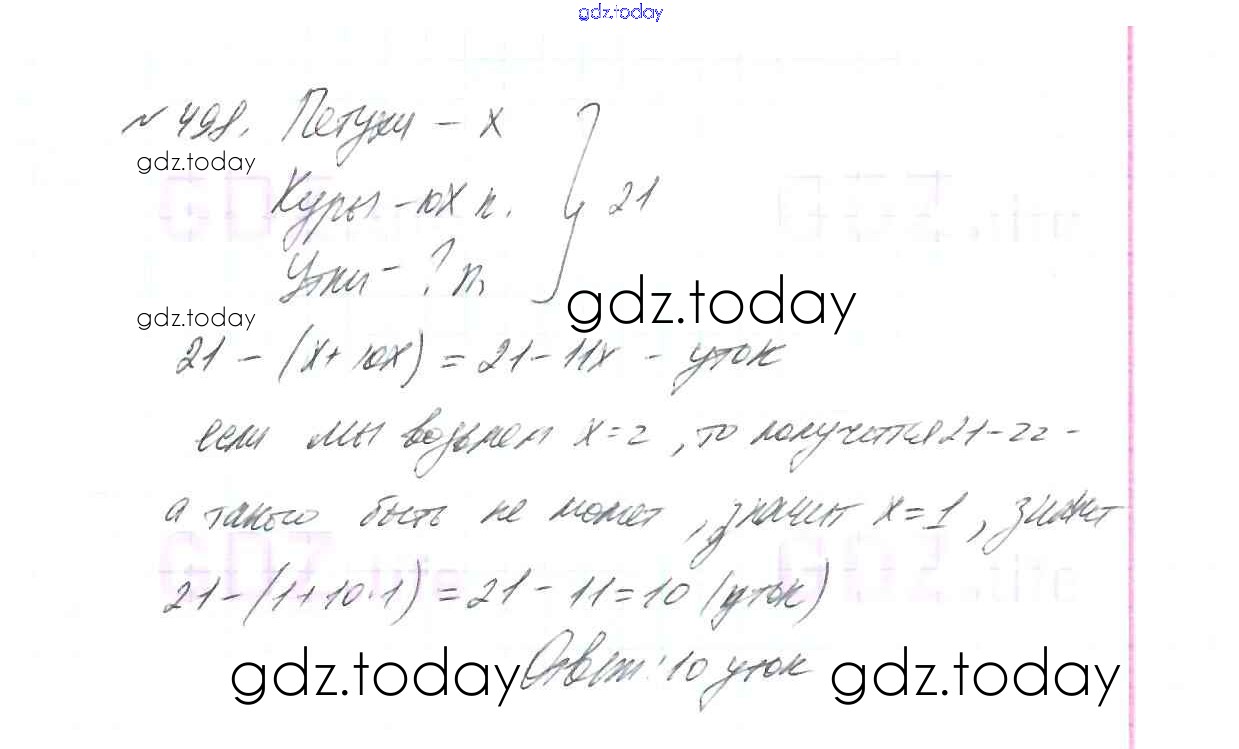 gdz.today
№ 498. Петухи – х
gdz.today
Куры – 10х п. } 21
Утки – ? п.
gdz.today
gdz.today
21 – (х + 10х) = 21 – 11х – уток
если мы возьмем х = 2, то получится 21 – 22 –
а такого быть не может, значит х = 1, значит
21 – (1 + 10 · 1) = 21 – 11 = 10 (уток)
gdz.today Ответ: 10 уток gdz.today